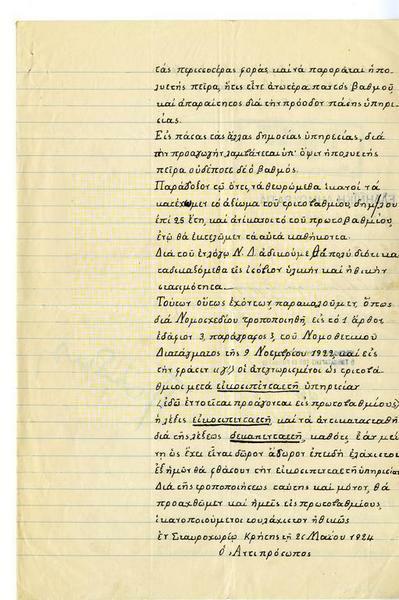 τάς περισσοτέρας φοράς, καί νά παροράται ἡ πο-
λυετής πεῖρα, ἥτις εἶνε ἀνωτέρα παντός βαθμοῦ
καί ἀπαραίτητος διά τήν πρόοδον πάσης ὑπηρε-
σίας.
Εἰς πάσας τάς ἄλλας δημοσίας ὑπηρεσίας, διά
τήν προαγωγήν λαμβάνεται ὑπ' ὄψιν ἡ πολυετής
πεῖρα οὐδέποτε δέ ὁ βαθμός.
Παράδοξον τῷ ὄντι, νά θεωρώμεθα ἱκανοί νά
κατέχωμεν τό ἀξίωμα τοῦ τριτοβαθμίου δημ/λου
ἐπί 25 ἔτη, καί ἀνίκανοι τό τοῦ πρωτοβαθμίου,
ἐνῶ θά ἐκτελῶμεν τά αὐτά καθήκοντα.
Διά τοῦ ἐν λόγῳ Ν. Δ. ἀδικούμεθα πολύ διότι κα-
ταδικαζόμεθα εἰς ἰσόβιον ὑλικήν καί ἠθικήν
στασιμότητα.
Τούτων οὕτως ἐχόντων, παρακαλοῦμεν, ὅπως
διά Νομοσχεδίου τροποποιηθῇ, εἰς τό 1 ἄρθρον
ἐδάφιον 3, παράγραφος , τοῦ Νομοθετικοῦ
Διατάγματος τῆς 9 Νοεμβρίου 1922, καί εἰς
τήν φράσιν «γ') οἱ ἀνεγνωρισμένοι ὡς τριτοβά-
θμιοι μετά εἰκοσιπενταετῆ ὑπηρεσίαν
(ἐδῶ ἐννοεῖται προάγονται εἰς πρωτοβαθμίους)
ἡ λέξις εἰκοσιπενταετῆ, καί νά ἀντικατασταθῇ
διά τῆς λέξεως δεκαπενταετῆ, καθότι ἐάν μεί-
νῃ ὡς ἔχει εἶναι δῶρον ἄδωρον ἐπειδή ἐλάχιστοι
ἐξ ἡμῶν θά φθάσουν τήν εἰκοσιπενταετῆ ὑπηρεσίαν
Διά τῆς τροποποιήσεως ταύτης καί μόνον, θά
προαχθῶμεν καί ἡμεῖς εἰς πρωτοβαθμίους,
ἱκανοποιούμενοι τουλάχιστον ἠθικῶς
ἐν Σταυροχωρίῳ Κρήτης τῇ 26 Μαΐου 1924
Ὁ Ἀντιπρόσωπος